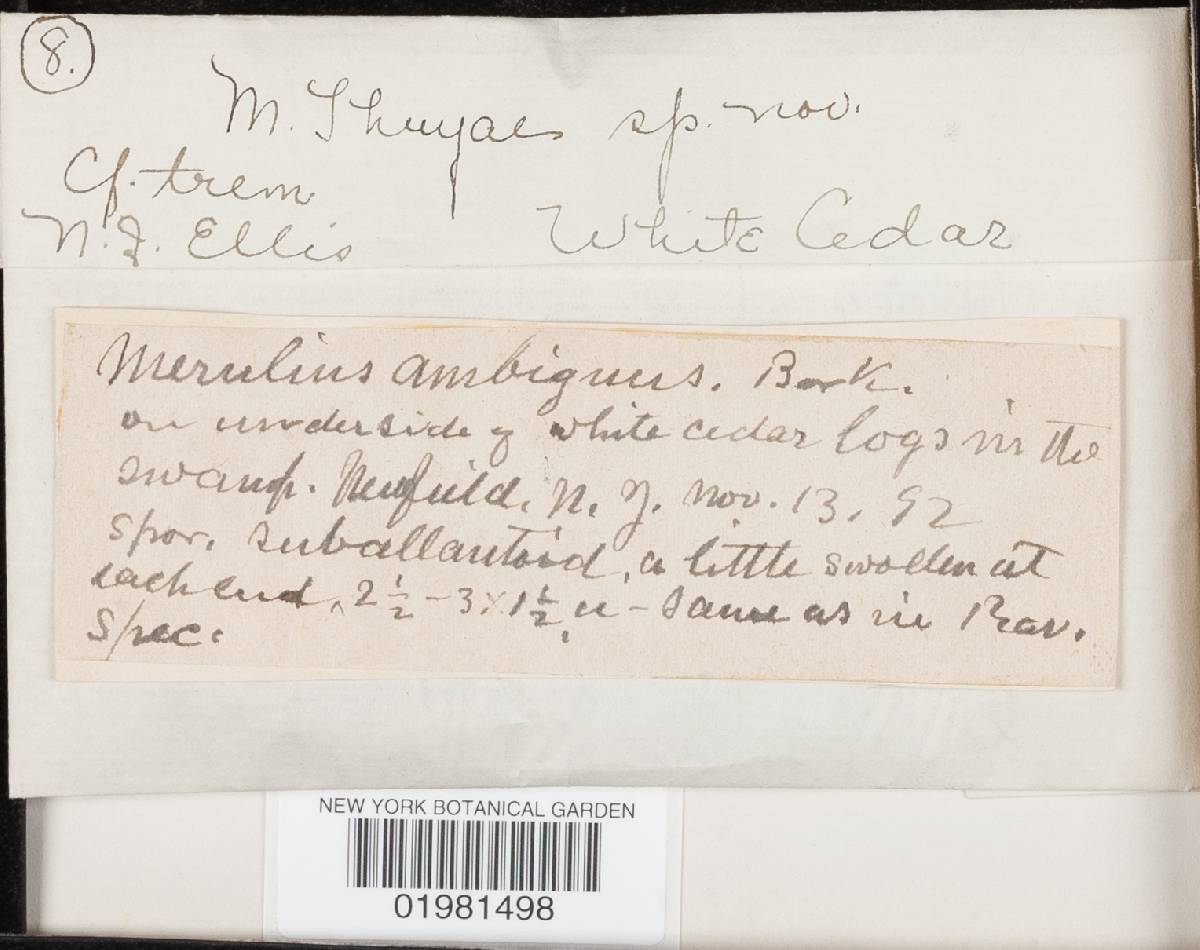 8.
M. Thuyaes sp. nov.
Cf. trem.
N.J. Ellis White Cedar
Merulius ambiguus. Berk.
on underside of white cedar logs in the
swamp. Newfield, N. J. Nov. 13, 92
spor. suballantoid, a little swollen at
each end, 2 1/2 - 3 x 1 1/2 u - same as in Rav.
Spec.
NEW YORK BOTANICAL GARDEN
01981498